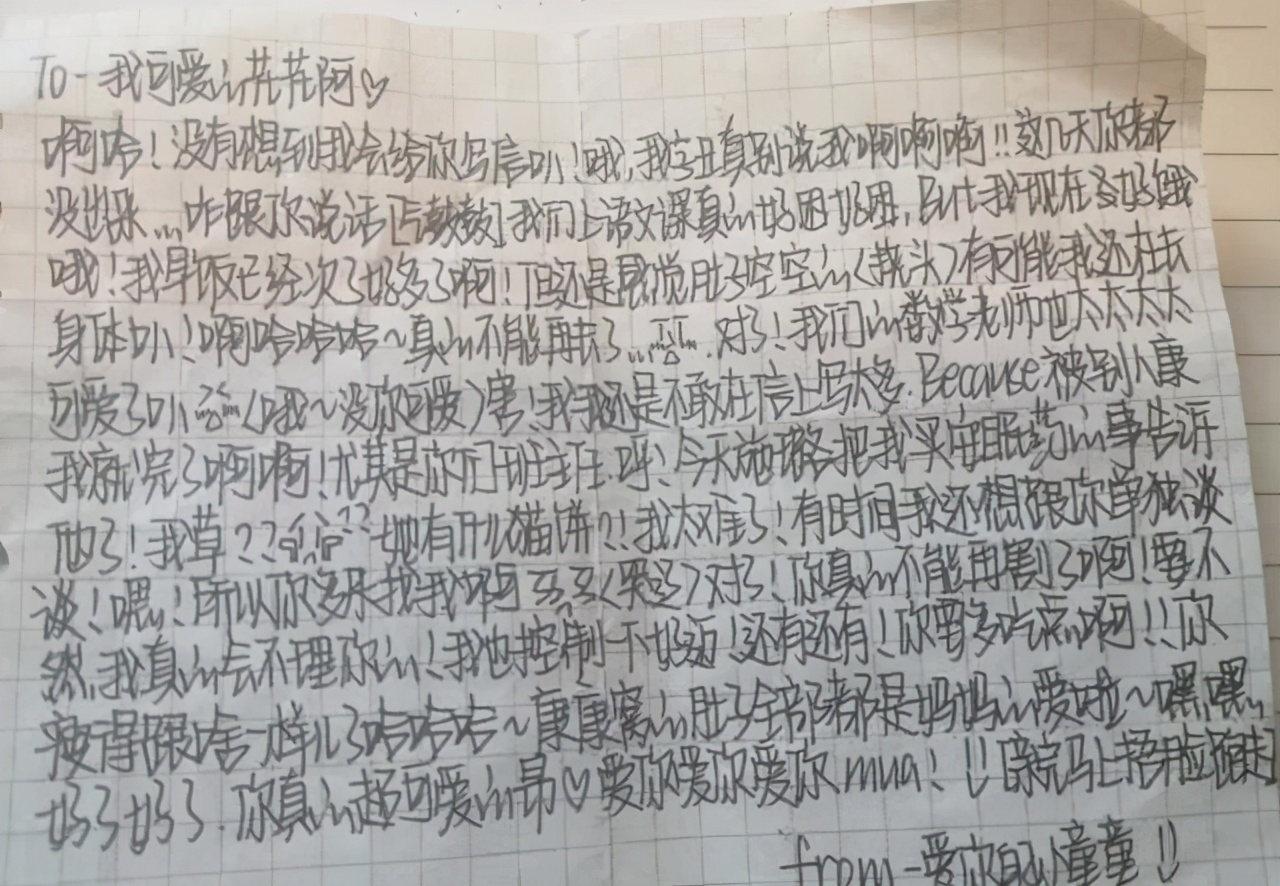 To-我可爱ㄉ花花阿♡
啊哈！没有想到我会给你写信叭！哦，我字丑真别说我啊啊啊!!这几天你都
没出来...咋跟你说话[气鼓鼓]我们上语文课真ㄉ好困好困,But我现在好饿
哦！我早饭已经次了好多了啊！但还是感觉肚子空空ㄉ(挠头)有可能我还在长
身体叭！啊哈哈哈~真ㄉ不能再长了...对了！我们ㄉ数学老师也太太太太
可爱了叭(哦~没你可爱)害！我还是不敢在信上写太多.Because被别人康
我就完了啊啊！尤其是你们班主任.呼！今天施璐把我买安眠药ㄉ事告诉
他了！我草??她有什么猫饼?!我太难了！有时间我还想跟你单独谈
谈！嘿！所以你多来找我啊(哭泣)对了！你真ㄉ不能再割了啊！要不
然,我真ㄉ会不理你ㄉ！我也控制一下好迈！还有还有！你要多吃点啊!!你
瘦得跟啥一样儿了哈哈哈~康康窝ㄉ肚子全部都是妈妈ㄉ爱啦~嘿嘿
好了好了.你真ㄉ超可爱ㄉ昂♡爱你爱你爱你mua！[亲完马上捂脸跑走]
from-爱你的小童童!!